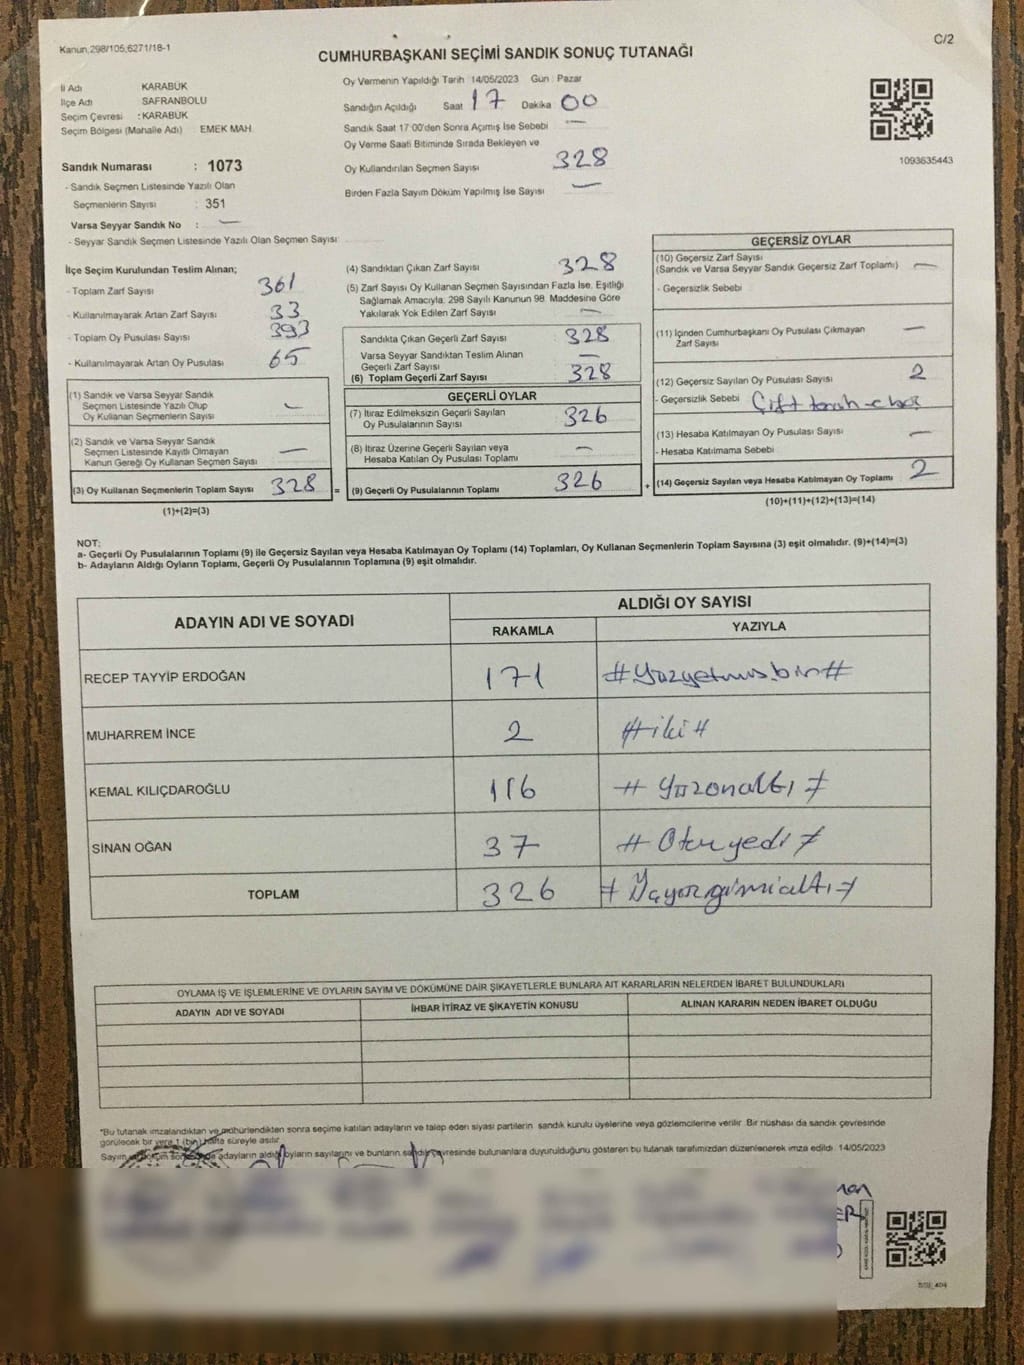 Kanun,298/105,6271/18-1
C/2
CUMHURBAŞKANI SEÇİMİ SANDIK SONUÇ TUTANAĞI
İl Adı KARABÜK
İlçe Adı SAFRANBOLU
Seçim Çevresi : KARABÜK
Seçim Bölgesi (Mahalle Adı) EMEK MAH.
Sandık Numarası : 1073
- Sandık Seçmen Listesinde Yazılı Olan
Seçmenlerin Sayısı : 351
Varsa Seyyar Sandık No : —
- Seyyar Sandık Seçmen Listesinde Yazılı Olan Seçmen Sayısı
Oy Vermenin Yapıldığı Tarih 14/05/2023 Gün : Pazar
Sandığın Açıldığı Saat 17 Dakika 00
Sandık Saat 17:00'den Sonra Açımış İse Sebebi —
Oy Verme Saati Bitiminde Sırada Bekleyen ve
Oy Kullandırılan Seçmen Sayısı 328
Birden Fazla Sayım Döküm Yapılmış İse Sayısı —
1093635443
İlçe Seçim Kurulundan Teslim Alınan;
- Toplam Zarf Sayısı 361
- Kullanılmayarak Artan Zarf Sayısı 33
- Toplam Oy Pusulası Sayısı 393
- Kullanılmayarak Artan Oy Pusulası 65
(1) Sandık ve Varsa Seyyar Sandık
Seçmen Listesinde Yazılı Olup
Oy Kullanan Seçmenlerin Sayısı —
(2) Sandık ve Varsa Seyyar Sandık
Seçmen Listesinde Kayıtlı Olmayan
Kanun Gereği Oy Kullanan Seçmen Sayısı —
(3) Oy Kullanan Seçmenlerin Toplam Sayısı 328
(1)+(2)=(3)
=
(4) Sandıktan Çıkan Zarf Sayısı 328
(5) Zarf Sayısı Oy Kullanan Seçmen Sayısından Fazla İse, Eşitliği
Sağlamak Amacıyla, 298 Sayılı Kanunun 98. Maddesine Göre
Yakılarak Yok Edilen Zarf Sayısı —
Sandıkta Çıkan Geçerli Zarf Sayısı 328
Varsa Seyyar Sandıktan Teslim Alınan
Geçerli Zarf Sayısı —
(6) Toplam Geçerli Zarf Sayısı 328
GEÇERLİ OYLAR
(7) İtiraz Edilmeksizin Geçerli Sayılan
Oy Pusulalarının Sayısı 326
(8) İtiraz Üzerine Geçerli Sayılan veya
Hesaba Katılan Oy Pusulası Toplamı —
(9) Geçerli Oy Pusulalarının Toplamı 326
+
GEÇERSİZ OYLAR
(10) Geçersiz Zarf Sayısı
(Sandık ve Varsa Seyyar Sandık Geçersiz Zarf Toplamı) —
- Geçersizlik Sebebi
(11) İçinden Cumhurbaşkanı Oy Pusulası Çıkmayan
Zarf Sayısı —
(12) Geçersiz Sayılan Oy Pusulası Sayısı 2
- Geçersizlik Sebebi Çift
(13) Hesaba Katılmayan Oy Pusulası Sayısı —
- Hesaba Katılmama Sebebi
(14) Geçersiz Sayılan veya Hesaba Katılmayan Oy Toplamı 2
(10)+(11)+(12)+(13)=(14)
NOT;
a- Geçerli Oy Pusulalarının Toplamı (9) ile Geçersiz Sayılan veya Hesaba Katılmayan Oy Toplamı (14) Toplamları, Oy Kullanan Seçmenlerin Toplam Sayısına (3) eşit olmalıdır. (9)+(14)=(3)
b- Adayların Aldığı Oyların Toplamı, Geçerli Oy Pusulalarının Toplamına (9) eşit olmalıdır.
ADAYIN ADI VE SOYADI ALDIĞI OY SAYISI
RAKAMLA YAZIYLA
RECEP TAYYİP ERDOĞAN 171 #Yüzyetmişbir#
MUHARREM İNCE 2 #iki#
KEMAL KILIÇDAROĞLU 116 #Yüzonaltı#
SİNAN OĞAN 37 #Otuzyedi#
TOPLAM 326 #Üçyüzyirmialtı#
OYLAMA İŞ VE İŞLEMLERİNE VE OYLARIN SAYIM VE DÖKÜMÜNE DAİR ŞİKAYETLERLE BUNLARA AİT KARARLARIN NELERDEN İBARET BULUNDUKLARI
ADAYIN ADI VE SOYADI İHBAR İTİRAZ VE ŞİKAYETİN KONUSU ALINAN KARARIN NEDEN İBARET OLDUĞU
*Bu tutanak imzalandıktan ve mühürlendikten sonra seçime katılan adayların ve talep eden siyasi partilerin sandık kurulu üyelerine veya gözlemcilerine verilir. Bir nüshası da sandık çevresinde
görülecek bir yere 1 (bir) hafta süreyle asılır.
Sayım ve döküm adayların aldığı oyların sayılarını ve bunların sandık çevresinde bulunanlara duyurulduğunu gösteren bu tutanak tarafımızdan düzenlenerek imza edildi. 14/05/2023